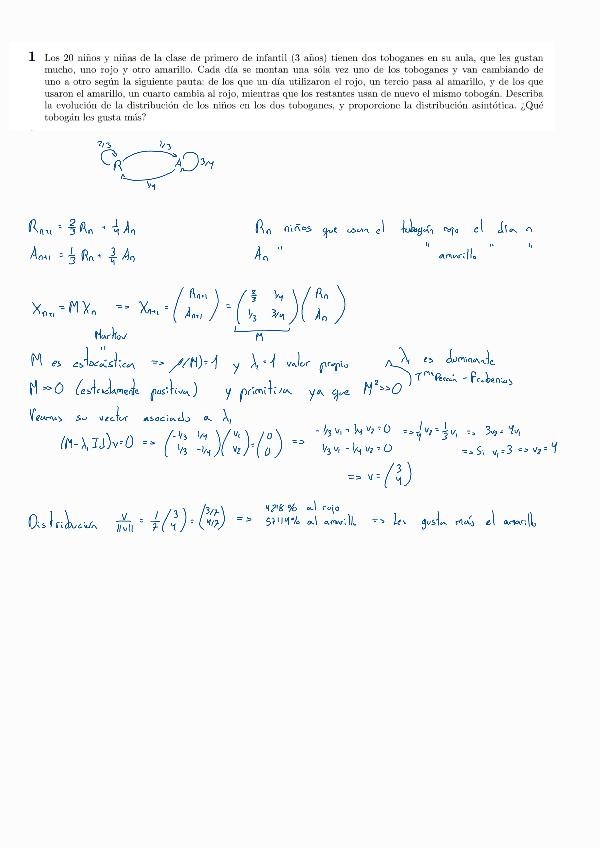 1 Los 20 niños y niñas de la clase de primero de infantil (3 años) tienen dos toboganes en su aula, que les gustan
mucho, uno rojo y otro amarillo. Cada día se montan una sóla vez uno de los toboganes y van cambiando de
uno a otro según la siguiente pauta: de los que un día utilizaron el rojo, un tercio pasa al amarillo, y de los que
usaron el amarillo, un cuarto cambia al rojo, mientras que los restantes usan de nuevo el mismo tobogán. Describa
la evolución de la distribución de los niños en los dos toboganes, y proporcione la distribución asintótica. ¿Qué
tobogán les gusta más?
2/3 1/3
R A 3/4
1/4
Rn+1 = 2/3 Rn + 1/4 An Rn niños que usan el tobogán rojo el día n
An+1 = 1/3 Rn + 3/4 An An " " amarillo " "
Xn+1 = M Xn => Xn+1 = (Rn+1 An+1) = (2/3 1/4 1/3 3/4) (Rn An)
M
Markov
"
M es estocástica => ρ(M)=1 y λ1=1 valor propio λ1 es dominante
Tma Perron - Frobenius
M>>0 (estrictamente positiva) y primitiva ya que M²>>0
Veamos su vector asociado a λ1
(M-λ1 Id)v=0 => (-1/3 1/4 1/3 -1/4) (v1 v2) = (0 0) => -1/3 v1 + 1/4 v2 = 0 => 1/4 v2 = 1/3 v1 => 3v2 = 4v1
1/3 v1 - 1/4 v2 = 0 => Si v1=3 => v2=4
=> v = (3 4)
Distribución v/||v|| = 1/7 (3 4) = (3/7 4/7) => al rojo
al amarillo => Les gusta más el amarillo